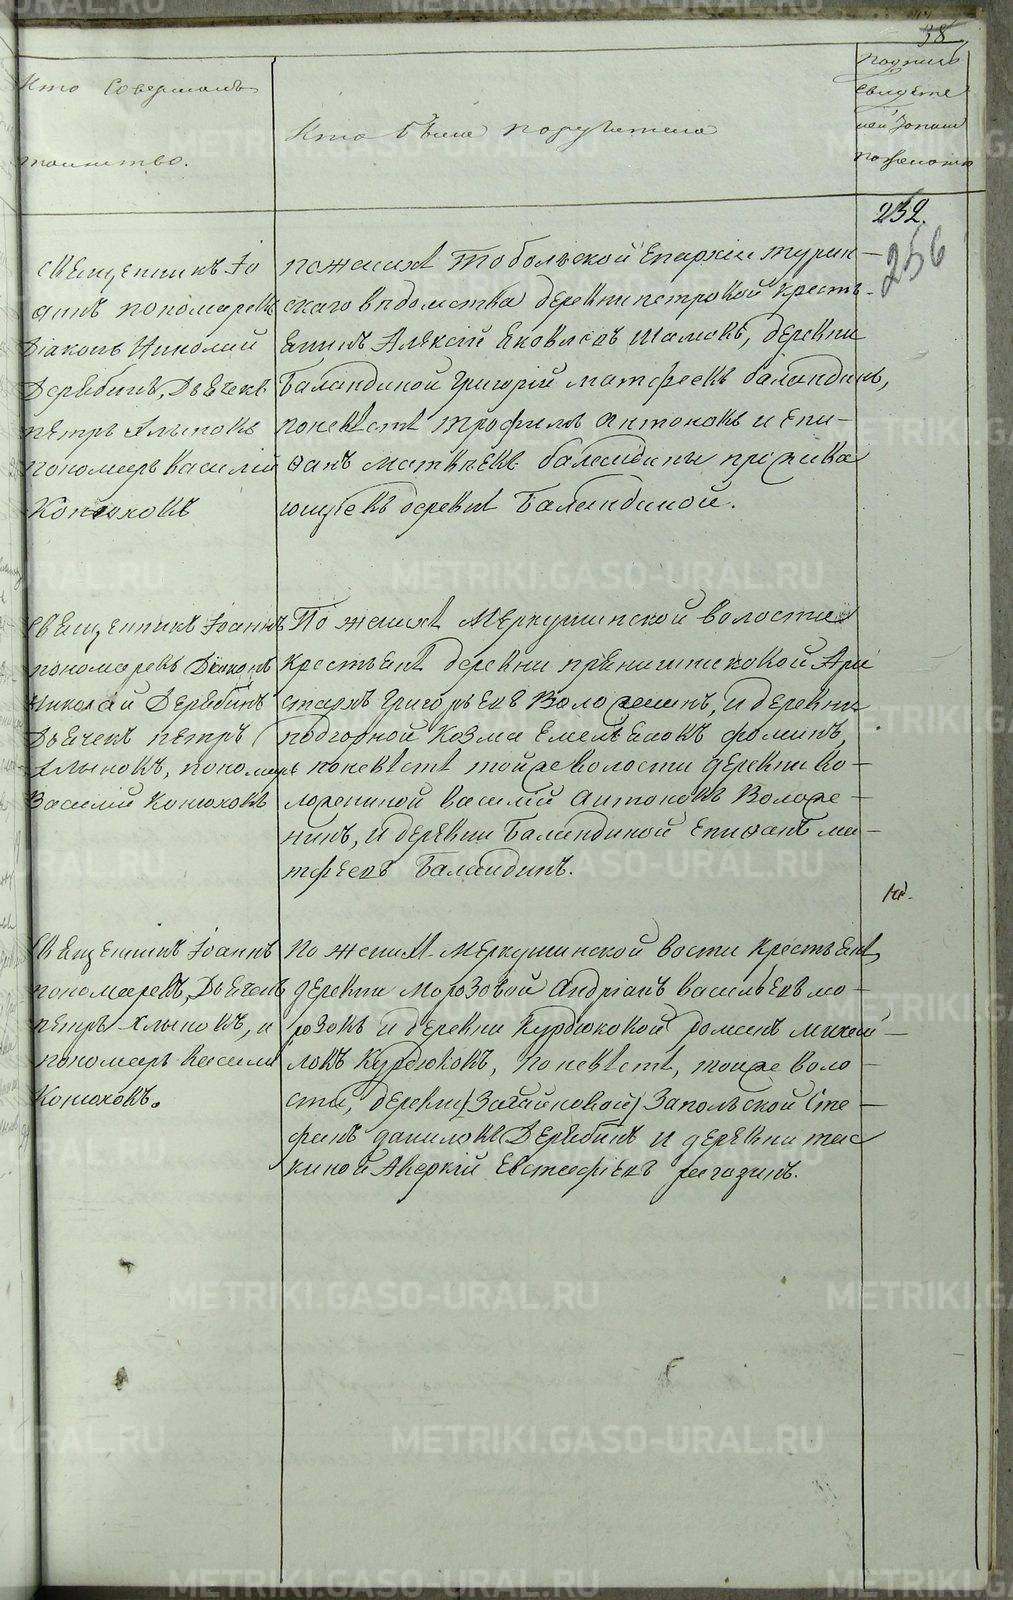 38
Кто совершалъ
таинство.
Кто были поручители
подпись
свидѣте
лей записи
по желанію
232.
256
Священникъ Іо
аннъ пономаревъ
Діаконъ Николай
Дерябинъ, Дьячекъ
петръ Хлыновъ
пономарь Василій
Конюховъ
по женихѣ Тобольской Епархіи турин-
скаго вѣдомства деревни петровой кресть-
янинъ Алексій Яковлевъ Шамовъ, деревни
Баландиной Григорій матфеевъ баландинъ,
по невѣстѣ Трофимъ антоновъ и епи-
ѳанъ матвѣевъ баландины прожива
ющіе въ деревнѣ Баландиной.
Священникъ Іоаннъ
пономаревъ Діаконъ
Николай Дерябинъ
Дьячекъ петръ
Хлыновъ, пономарь
Василій Конюховъ
По женихѣ Меркушинской волости
крестьянѣ деревни прянишниковой Ари
стархъ Григорьевъ Воложенинъ, и деревни
подгорной Козма Емельяновъ фоминъ,
по невѣстѣ той же волости деревни во-
ложениной василій антоновъ Воложе-
нинъ, и деревни Баландиной епиѳанъ ма-
тфеевъ Баландинъ.
Священникъ Іоаннъ
пономаревъ, Дьячекъ
петръ Хлыновъ, и
пономарь Василій
Конюховъ.
по женихѣ Меркушинской вости крестьянѣ,
деревни морозовой андріанъ васильевъ мо-
розовъ и деревни Курдюковой романъ михай-
ловъ Курдюковъ, по невѣстѣ, тойже воло-
сти, деревни Запольской Сте-
фанъ даниловъ Дерябинъ и деревни
Аверкій Евстафіевъ рагозинъ.
METRIKI.GASO-URAL.RU